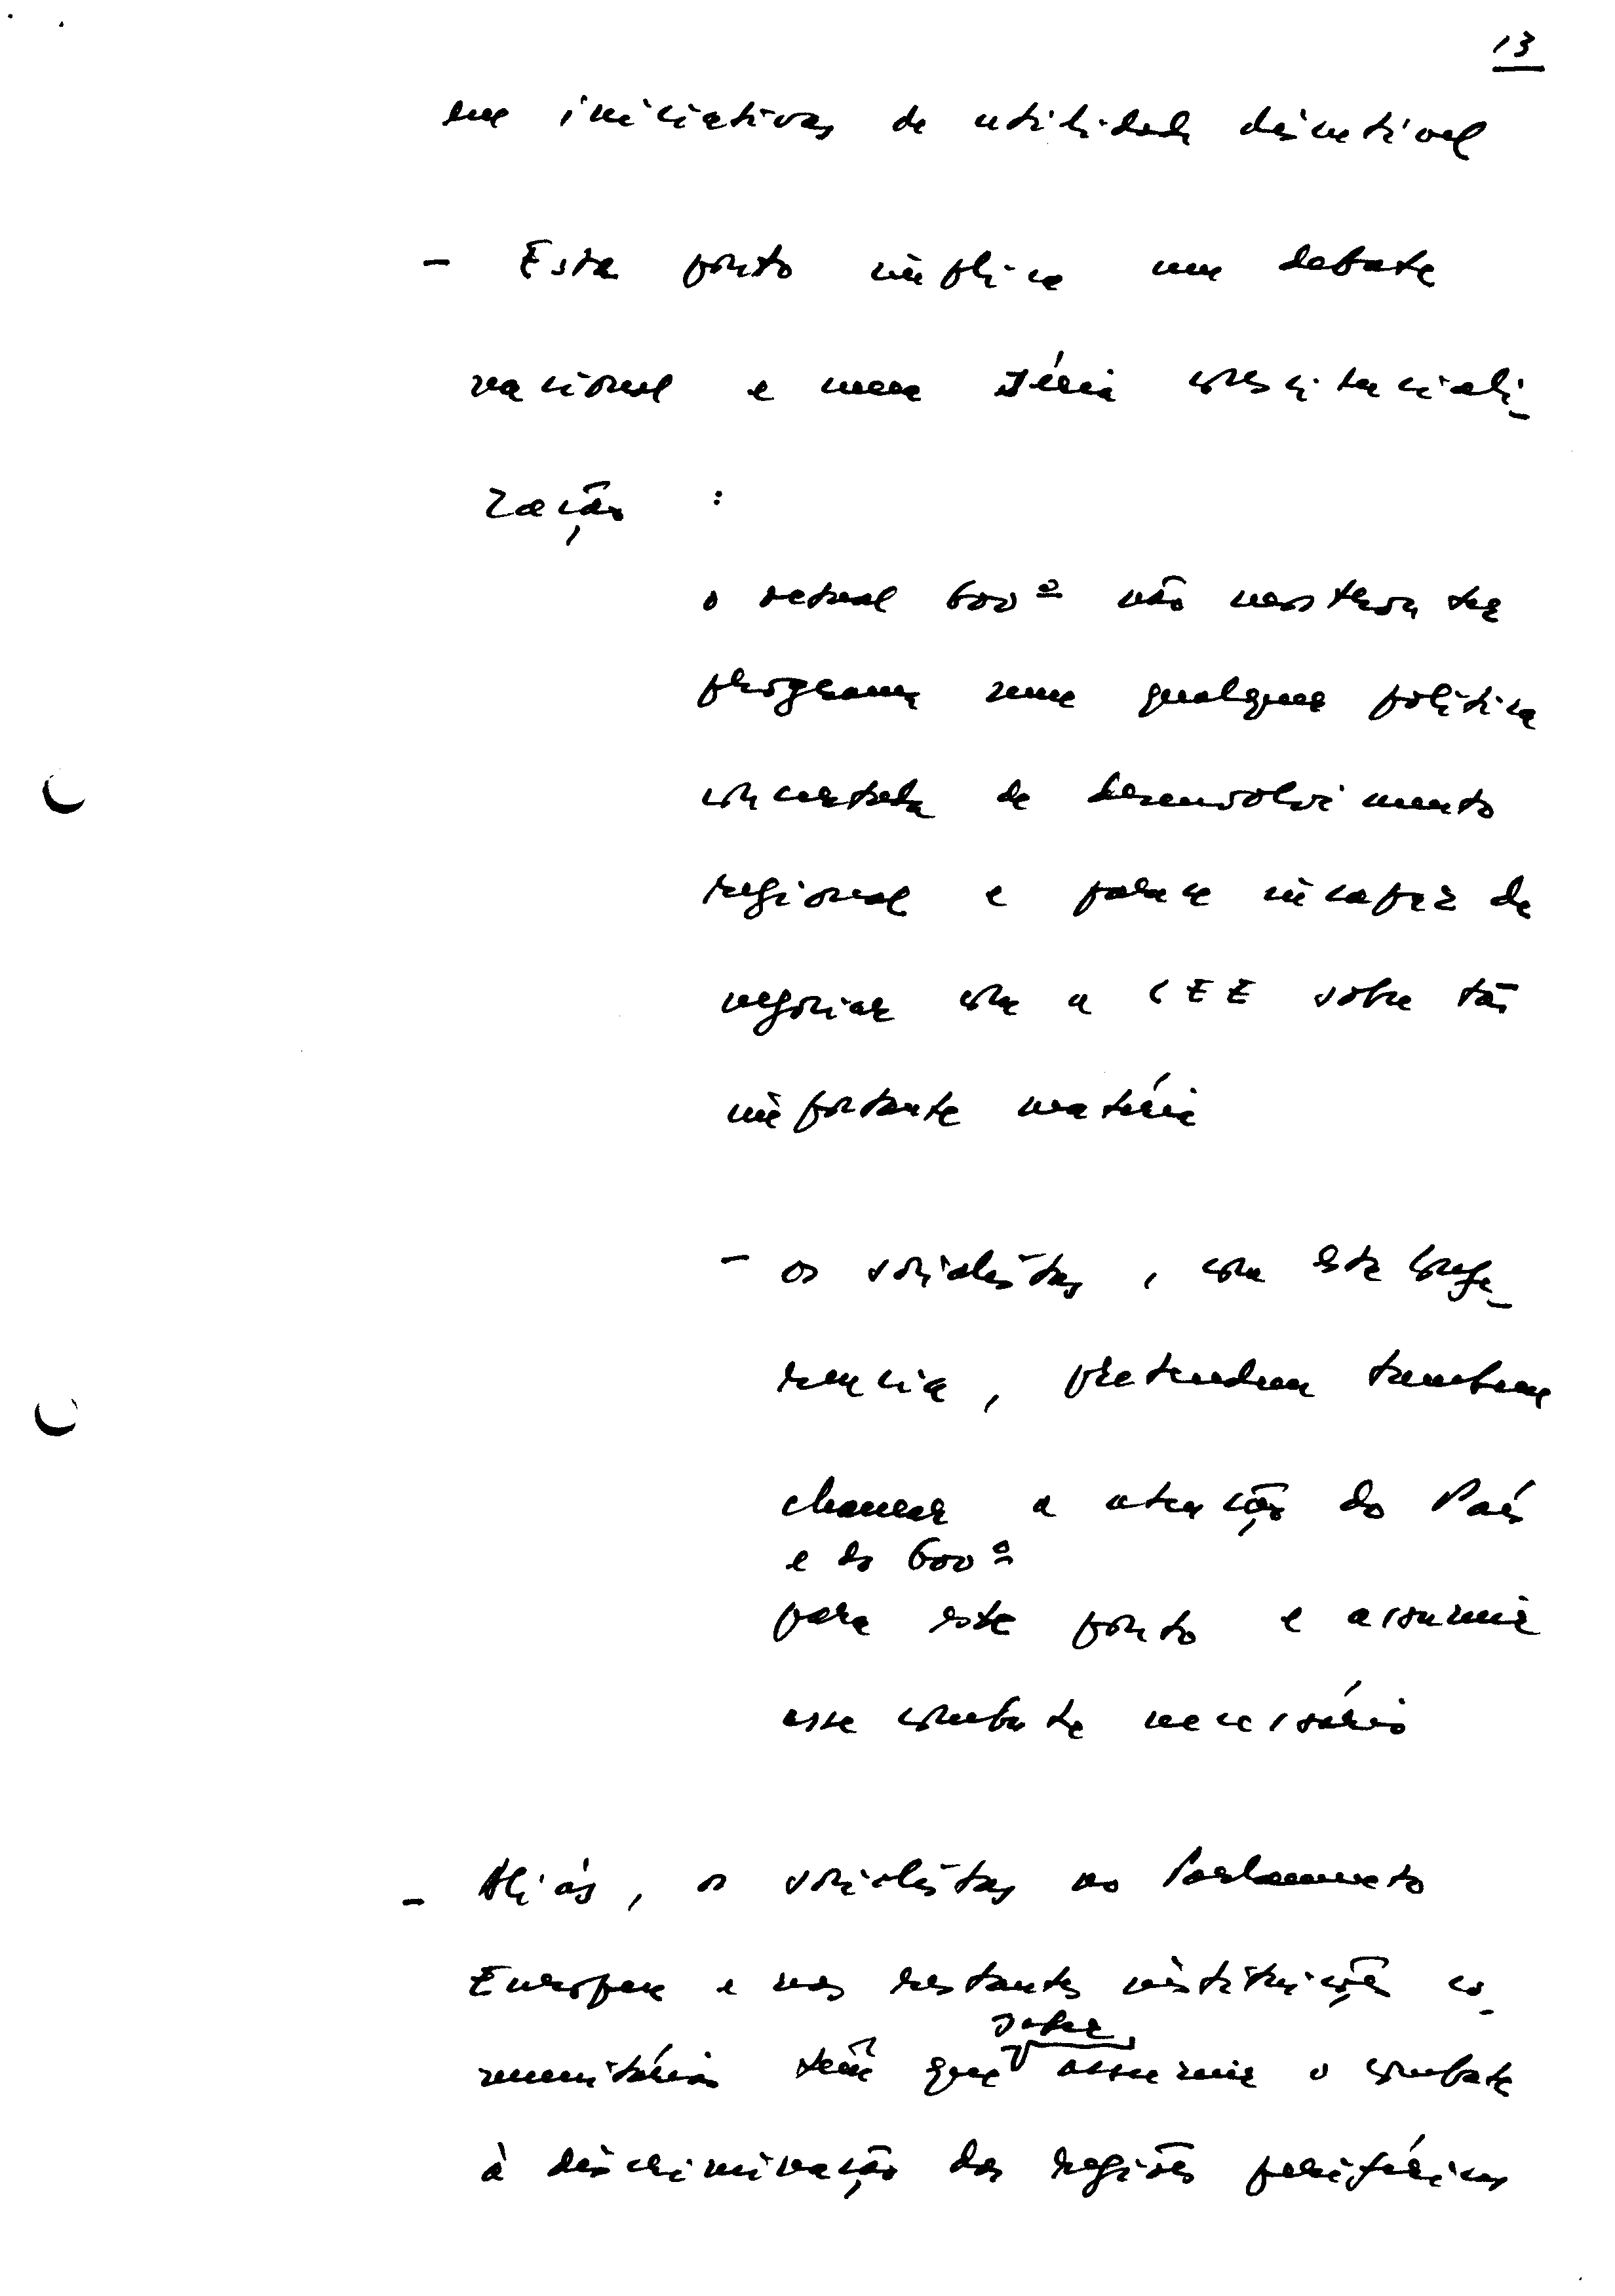 13
em iniciativas de utilidade discutível
- Este ponto implica um debate
nacional e uma séria conscienciali-
zação :
o actual Govº não mostrou ter
programa nem qualquer política
concertada de desenvolvimento
regional e parece incapaz de
negociar com a CEE sobre tão
importante matéria
- os socialistas, com esta Confe-
rencia, pretendem tambem
chamar a atenção do País
e do Govº
para este ponto e assumir
esse combate necessário
- Aliás, os socialistas no Parlamento
Europeu e nas restantes instituições co-
saber
munitárias têm que assumir o combate
à discriminação das regiões periféricas